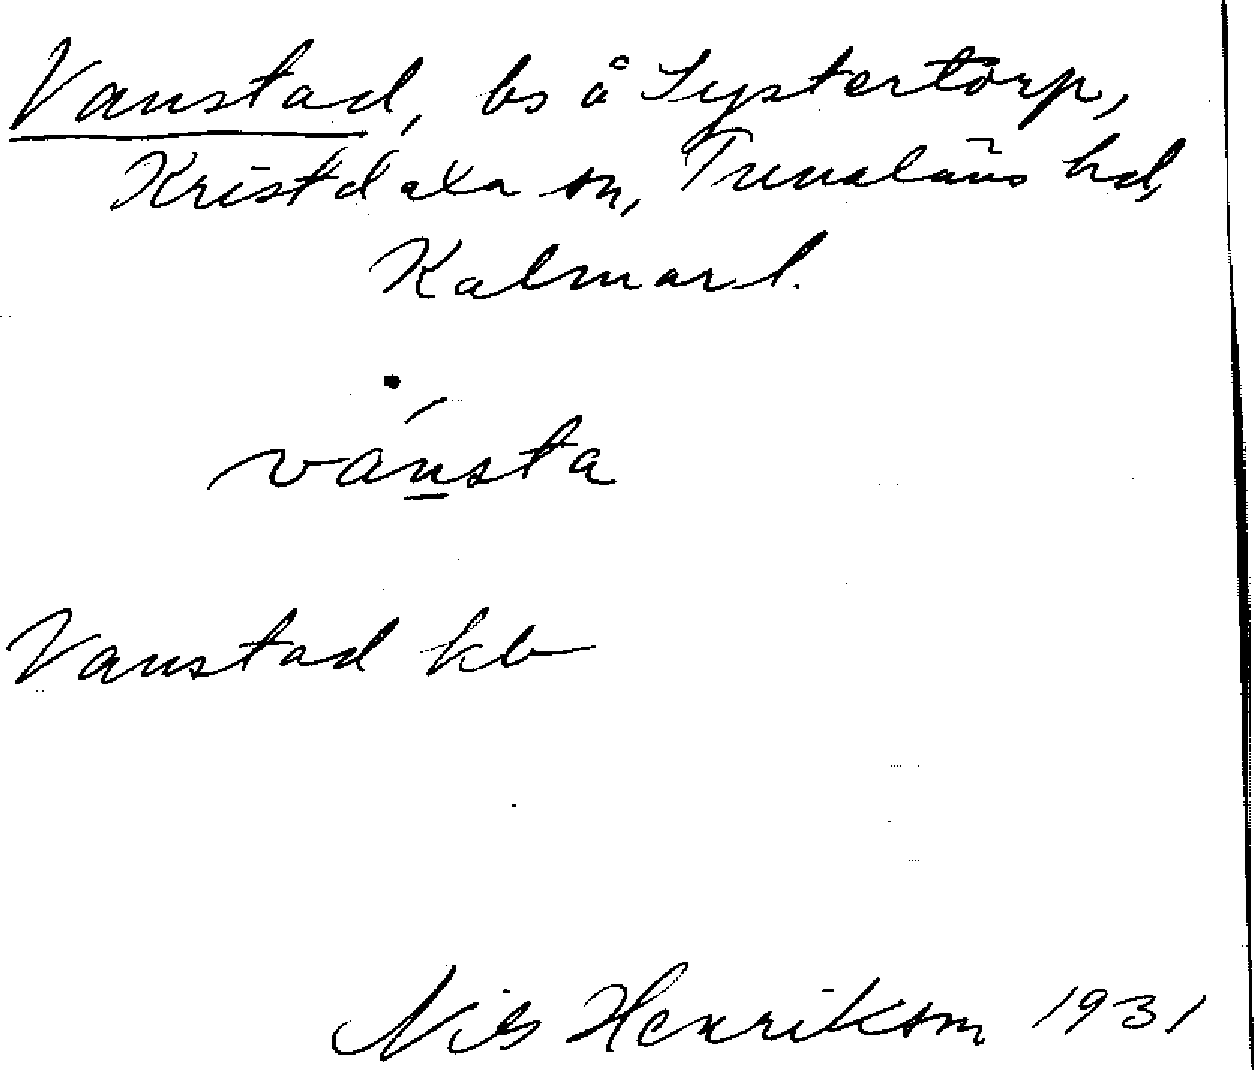 Vanstad, bs å Systertorp,
Kristdala sn, Tunaläns hd,
Kalmar l.
vánsta
Vanstad kb
Nils Henrikson 1931